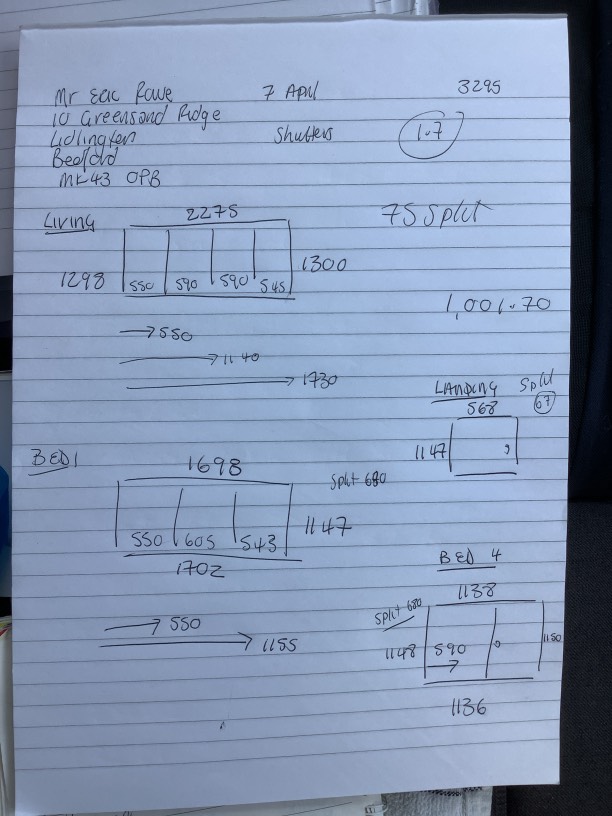 Mr Eric Rowe 7 April 3295
10 Greensand Ridge
Lidlington Shutters 1.7
Bedford
MK43 0PB
LIVING 2275 75 Split
1298 550 590 590 545 1300
1,001.70
→ 550
→ 1140
→ 1730
LANDING Split
568 67
1147
BED 1 1698 Split 680
550 605 543 1147
1702
→ 550
→ 1155
BED 4
1138
Split 680
1148 590 → 1150
1136